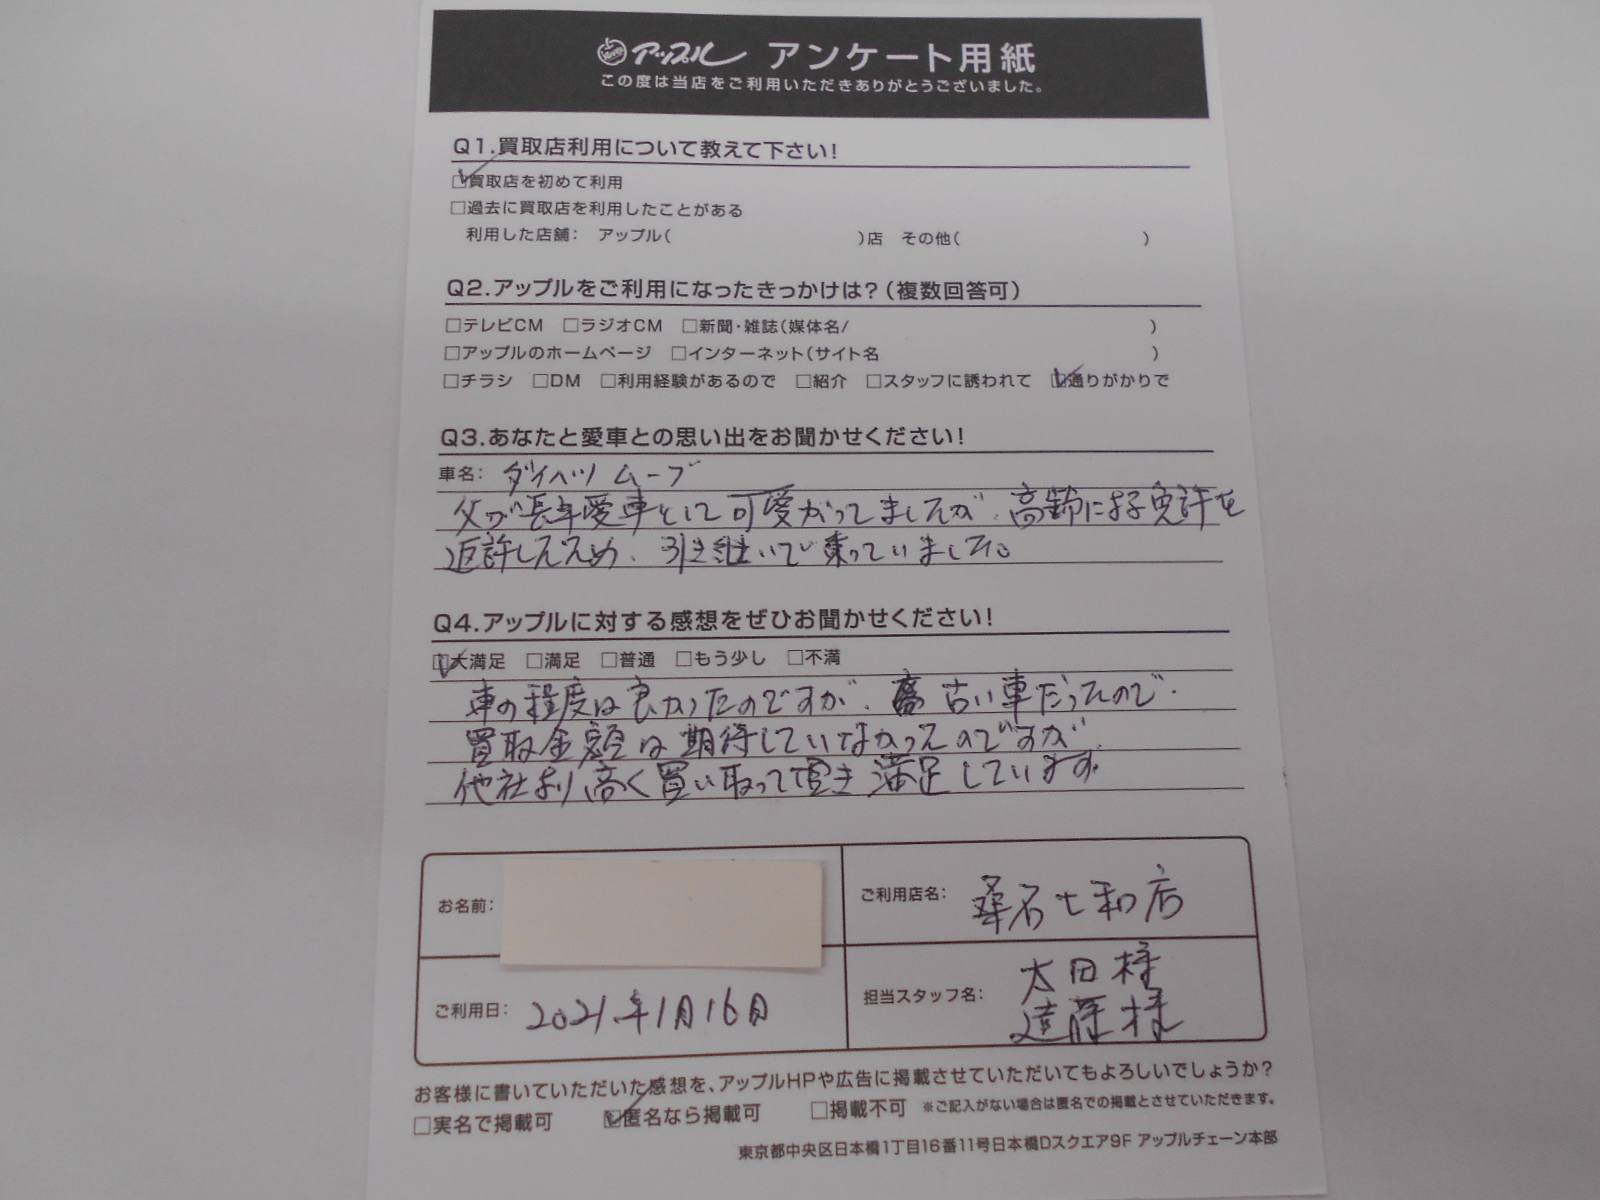 アップル アンケート用紙
この度は当店をご利用いただきありがとうございました。
Q1.買取店利用について教えて下さい!
☑買取店を初めて利用
□過去に買取店を利用したことがある
利用した店舗: アップル( )店 その他( )
Q2.アップルをご利用になったきっかけは?(複数回答可)
□テレビCM □ラジオCM □新聞・雑誌(媒体名/ )
□アップルのホームページ □インターネット(サイト名 )
□チラシ □DM □利用経験があるので □紹介 □スタッフに誘われて ☑通りがかりで
Q3.あなたと愛車との思い出をお聞かせください!
車名: ダイハツ ムーブ
父が長年愛車として可愛がってましたが、高齢による免許を
返許したため、引き継いで乗っていました。
Q4.アップルに対する感想をぜひお聞かせください!
☑大満足 □満足 □普通 □もう少し □不満
車の程度は良かったのですが、古い車だったので、
買取金額は期待していなかったのですが
他社より高く買い取って頂き満足しています。
お名前:
ご利用店名: 桑名大和店
ご利用日: 2021年1月16日
担当スタッフ名: 太田様
遠藤様
お客様に書いていただいた感想を、アップルHPや広告に掲載させていただいてもよろしいでしょうか?
□実名で掲載可 ☑匿名なら掲載可 □掲載不可 ※ご記入がない場合は匿名での掲載とさせていただきます。
東京都中央区日本橋1丁目16番11号日本橋Dスクエア9F アップルチェーン本部